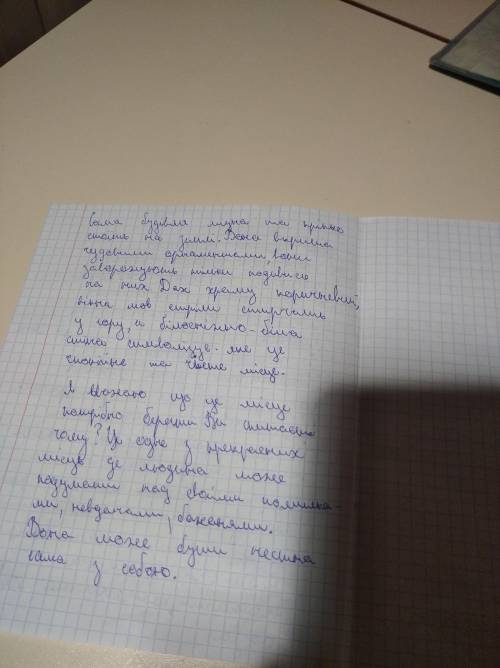 сама будівля міцна та міцно
стоїть на землі. Вона вкрита
чудовими орнаментами, вони
заворожують тільки подивись
на них Дах храму коричневий,
вікна мов стріли стирчать
у гору, а білосніжно-біла
стіна символізує яке це
спокійне та чисте місце.
Я вважаю що це місце
потрібно берегти Ви спитаєте
чому? Це одне з прекрасних
місць де людина може
подумати над своїми помилка-
ми, невдачами, бажаннями.
Вона може бути чесна
сама з собою.